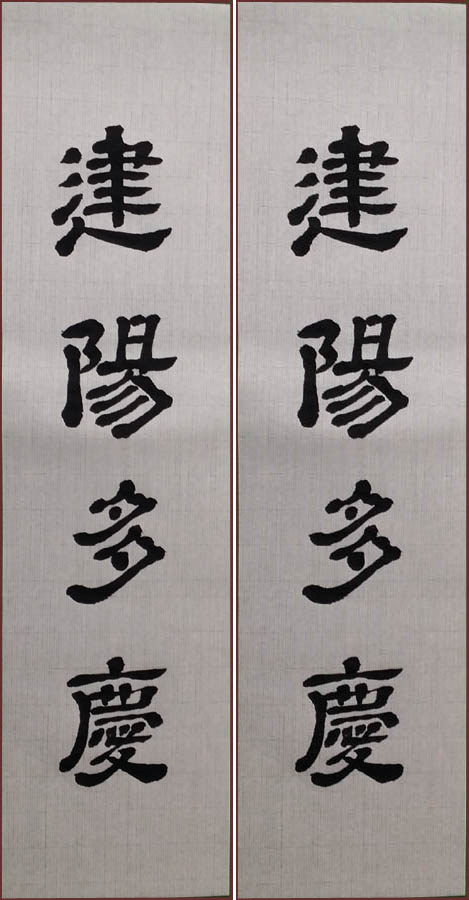 建陽多慶
建陽多慶